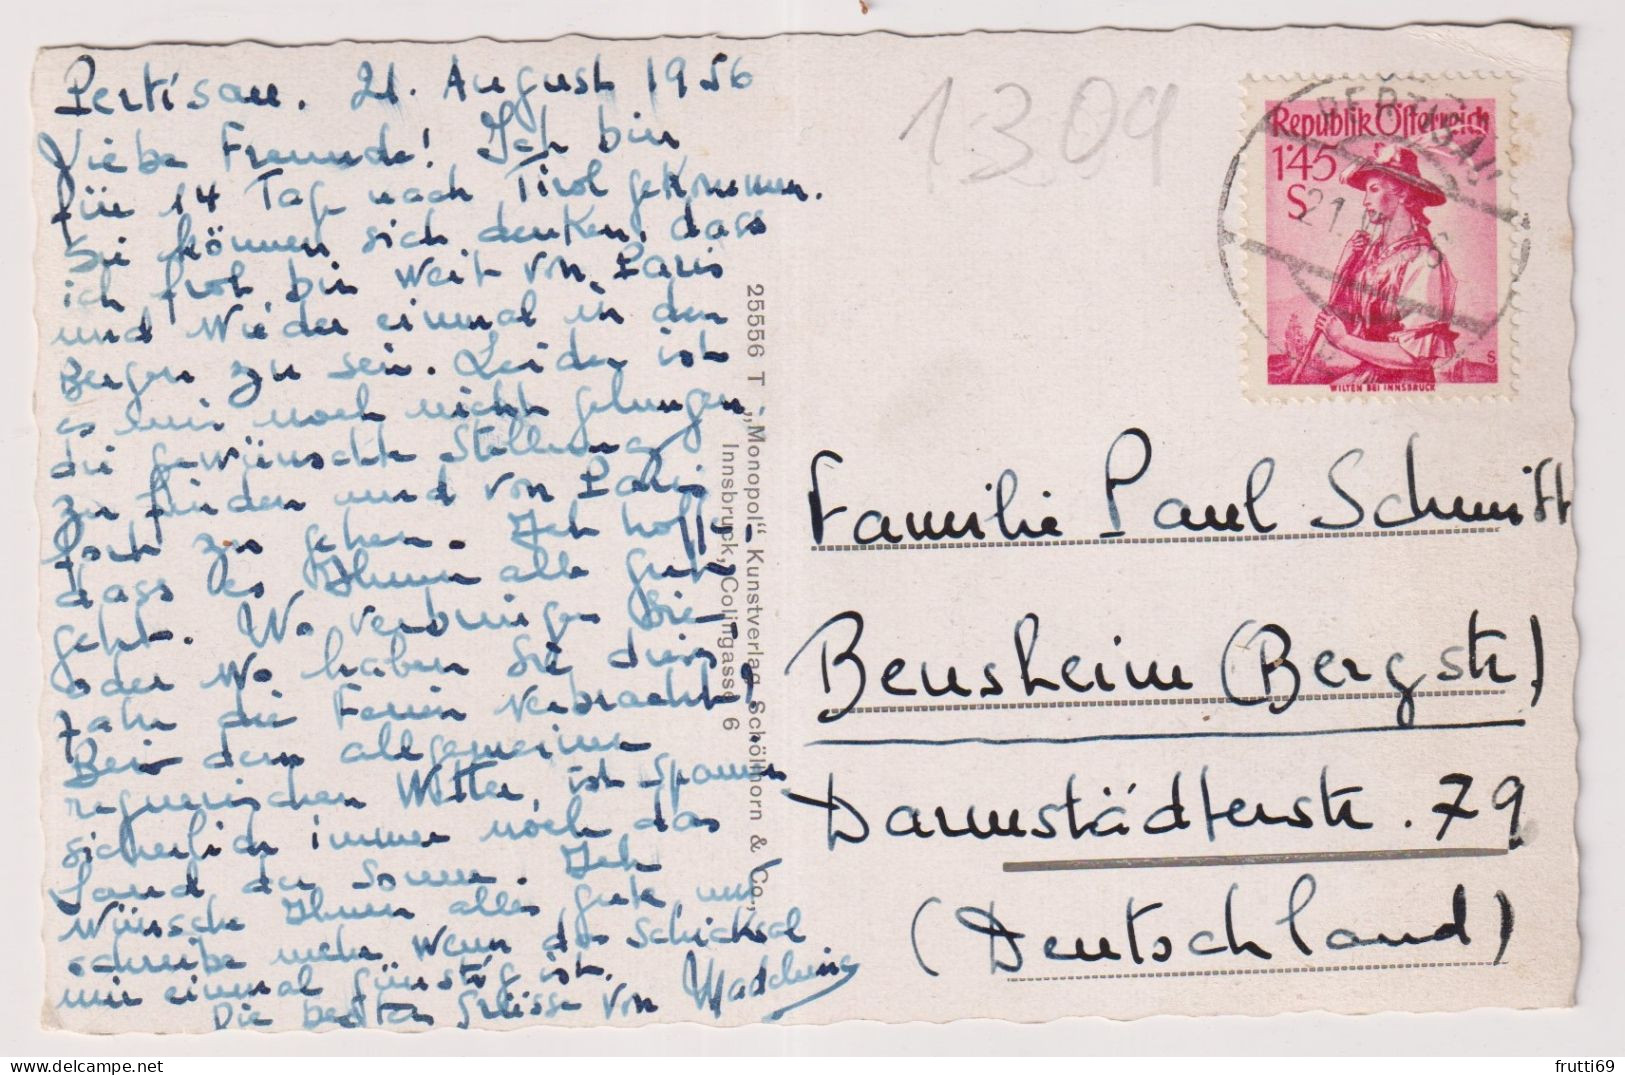 Pertisau. 21. August 1956
Liebe Freunde! Ich bin
für 14 Tage nach Tirol gekommen.
Sie können sich denken, dass
ich froh bin weit von Paris
und wieder einmal in den
Bergen zu sein. Leider ist
es mir noch nicht gelungen,
die gewünschte Stellung
zu finden und von Paris
fort zu gehen. Ich hoffe,
dass es Ihnen alle gut
geht. Wo verbringen Sie
oder wo haben Sie dieses
Jahr die Ferien verbracht!
Bei dem allgemeinen
regnerischen Wetter, ist Spanien
sicherlich immer noch das
Land der Sonne. Ich
wünsche Ihnen alles gute und
schreibe mehr wenn das Schicksal
mir einmal günstig ist.
Die besten Grüsse von Madeleine
25556 T „Monopol“ Kunstverlag Schöllhorn & Co.,
Innsbruck, Colingasse 6
1309
Republik Österreich
1·45
S
WILTEN BEI INNSBRUCK
S
PERTISAU
21. VIII. 56
Familie Paul Schmitt
Bensheim (Bergstr.)
Darmstädterstr. 79
(Deutschland)
frutti69